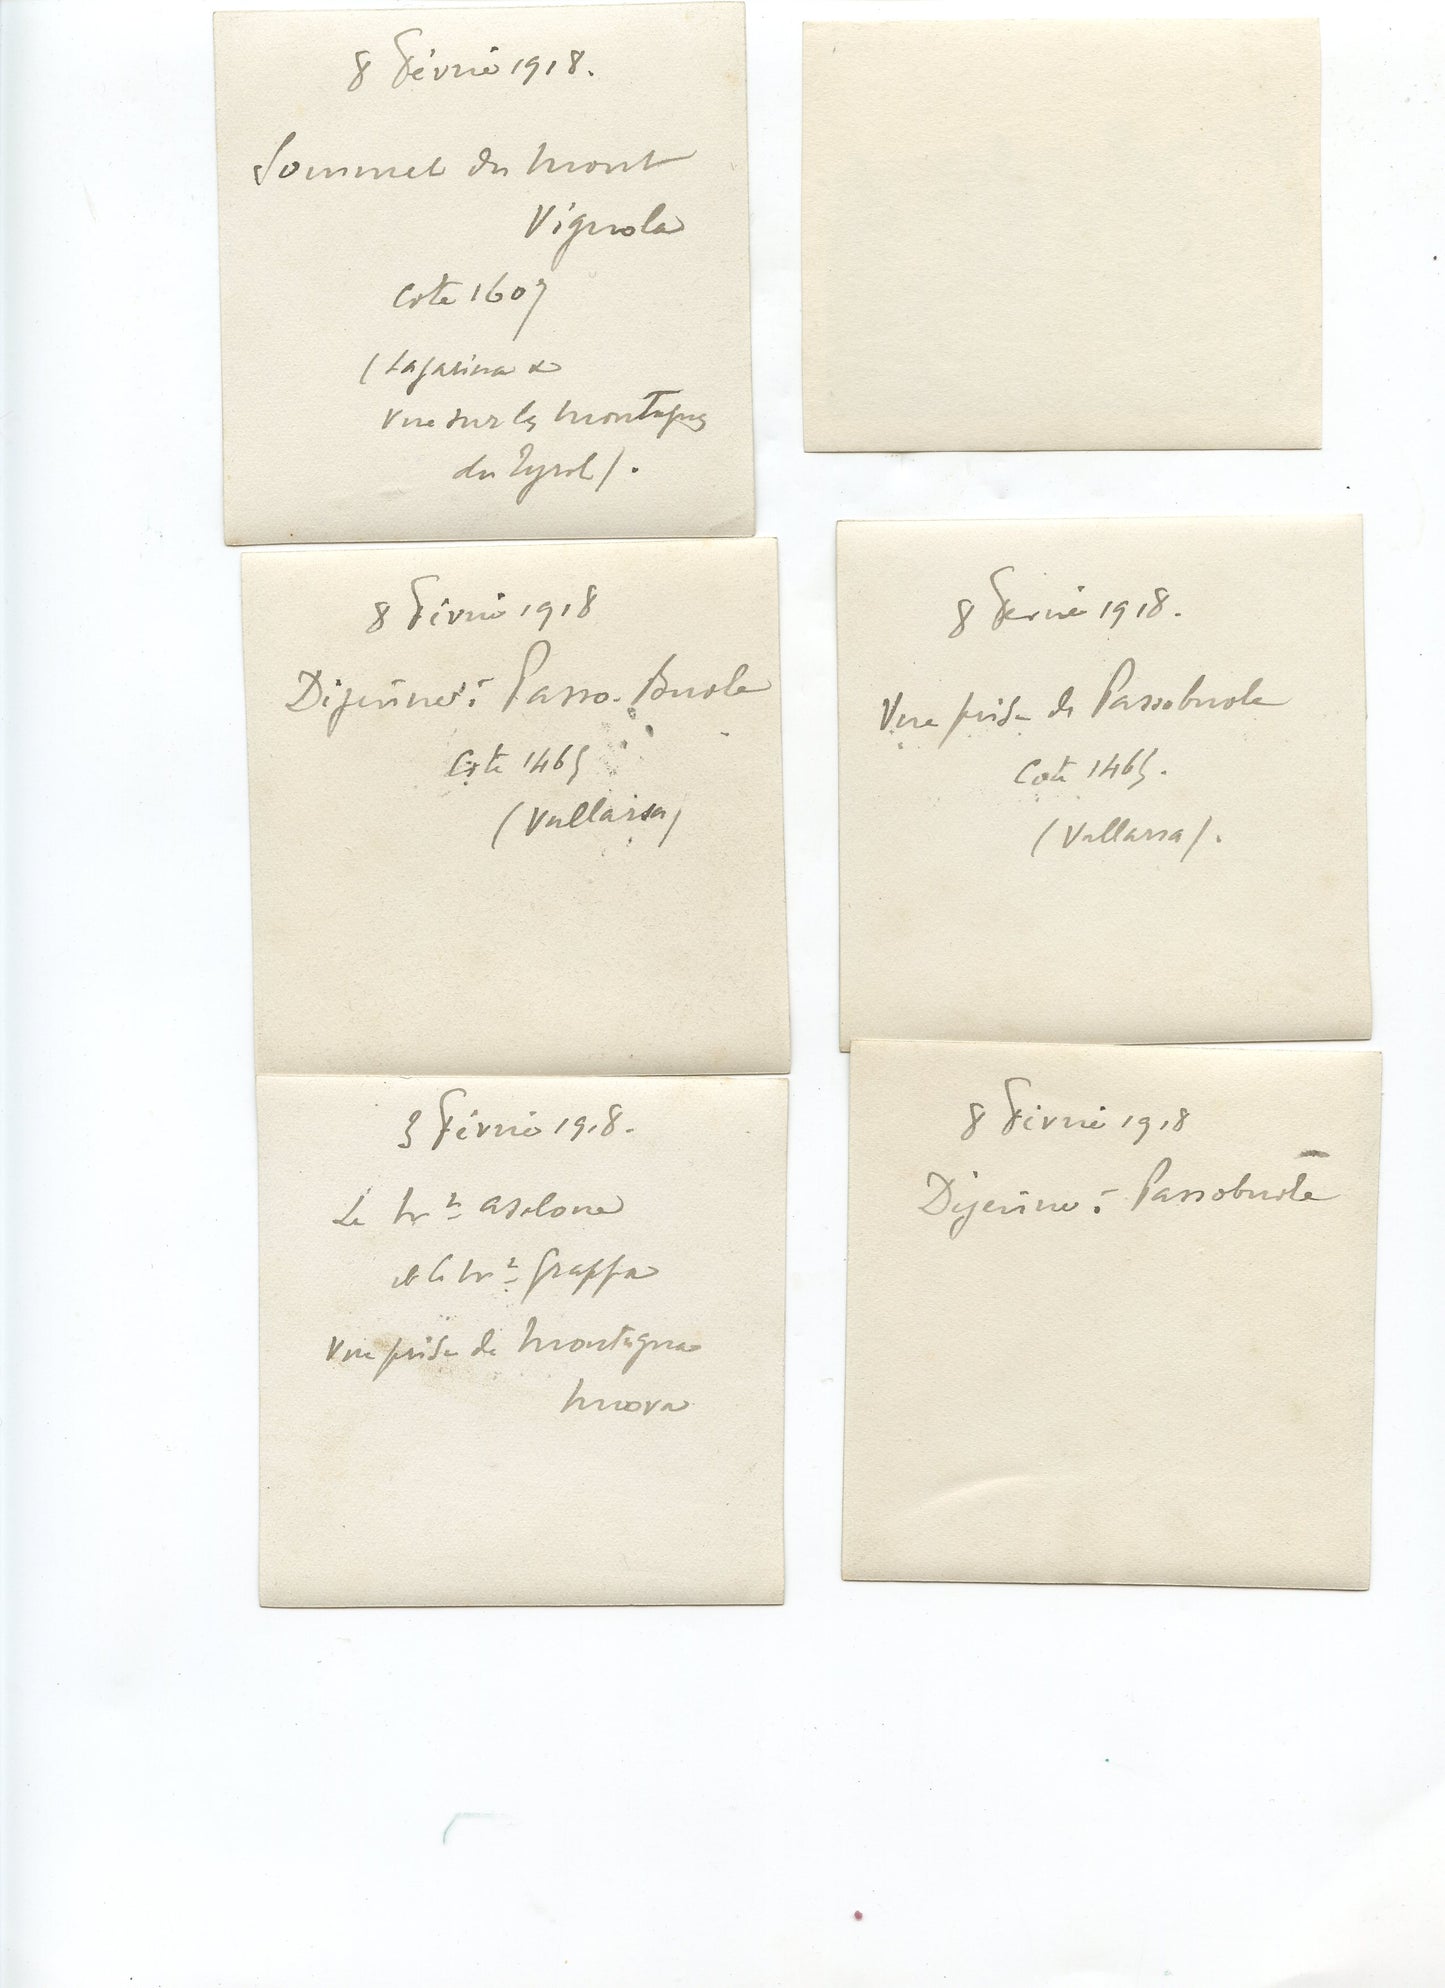 8 Février 1918.
Sommet du Mont
Vignola
Cote 1607
(Lagarina et
Vue sur les Montagnes
du Tyrol).
8 Février 1918
Déjeûner à Passo-Buole
Cote 1465
(Vallarsa)
8 Février 1918.
Vue prise de Passobuole
Cote 1465.
(Vallarsa).
3 Février 1918.
Le Mt Asolone
et le Mt Grappa
Vue prise de Montagna
Nuova
8 Février 1918
Déjeûner à Passobuole